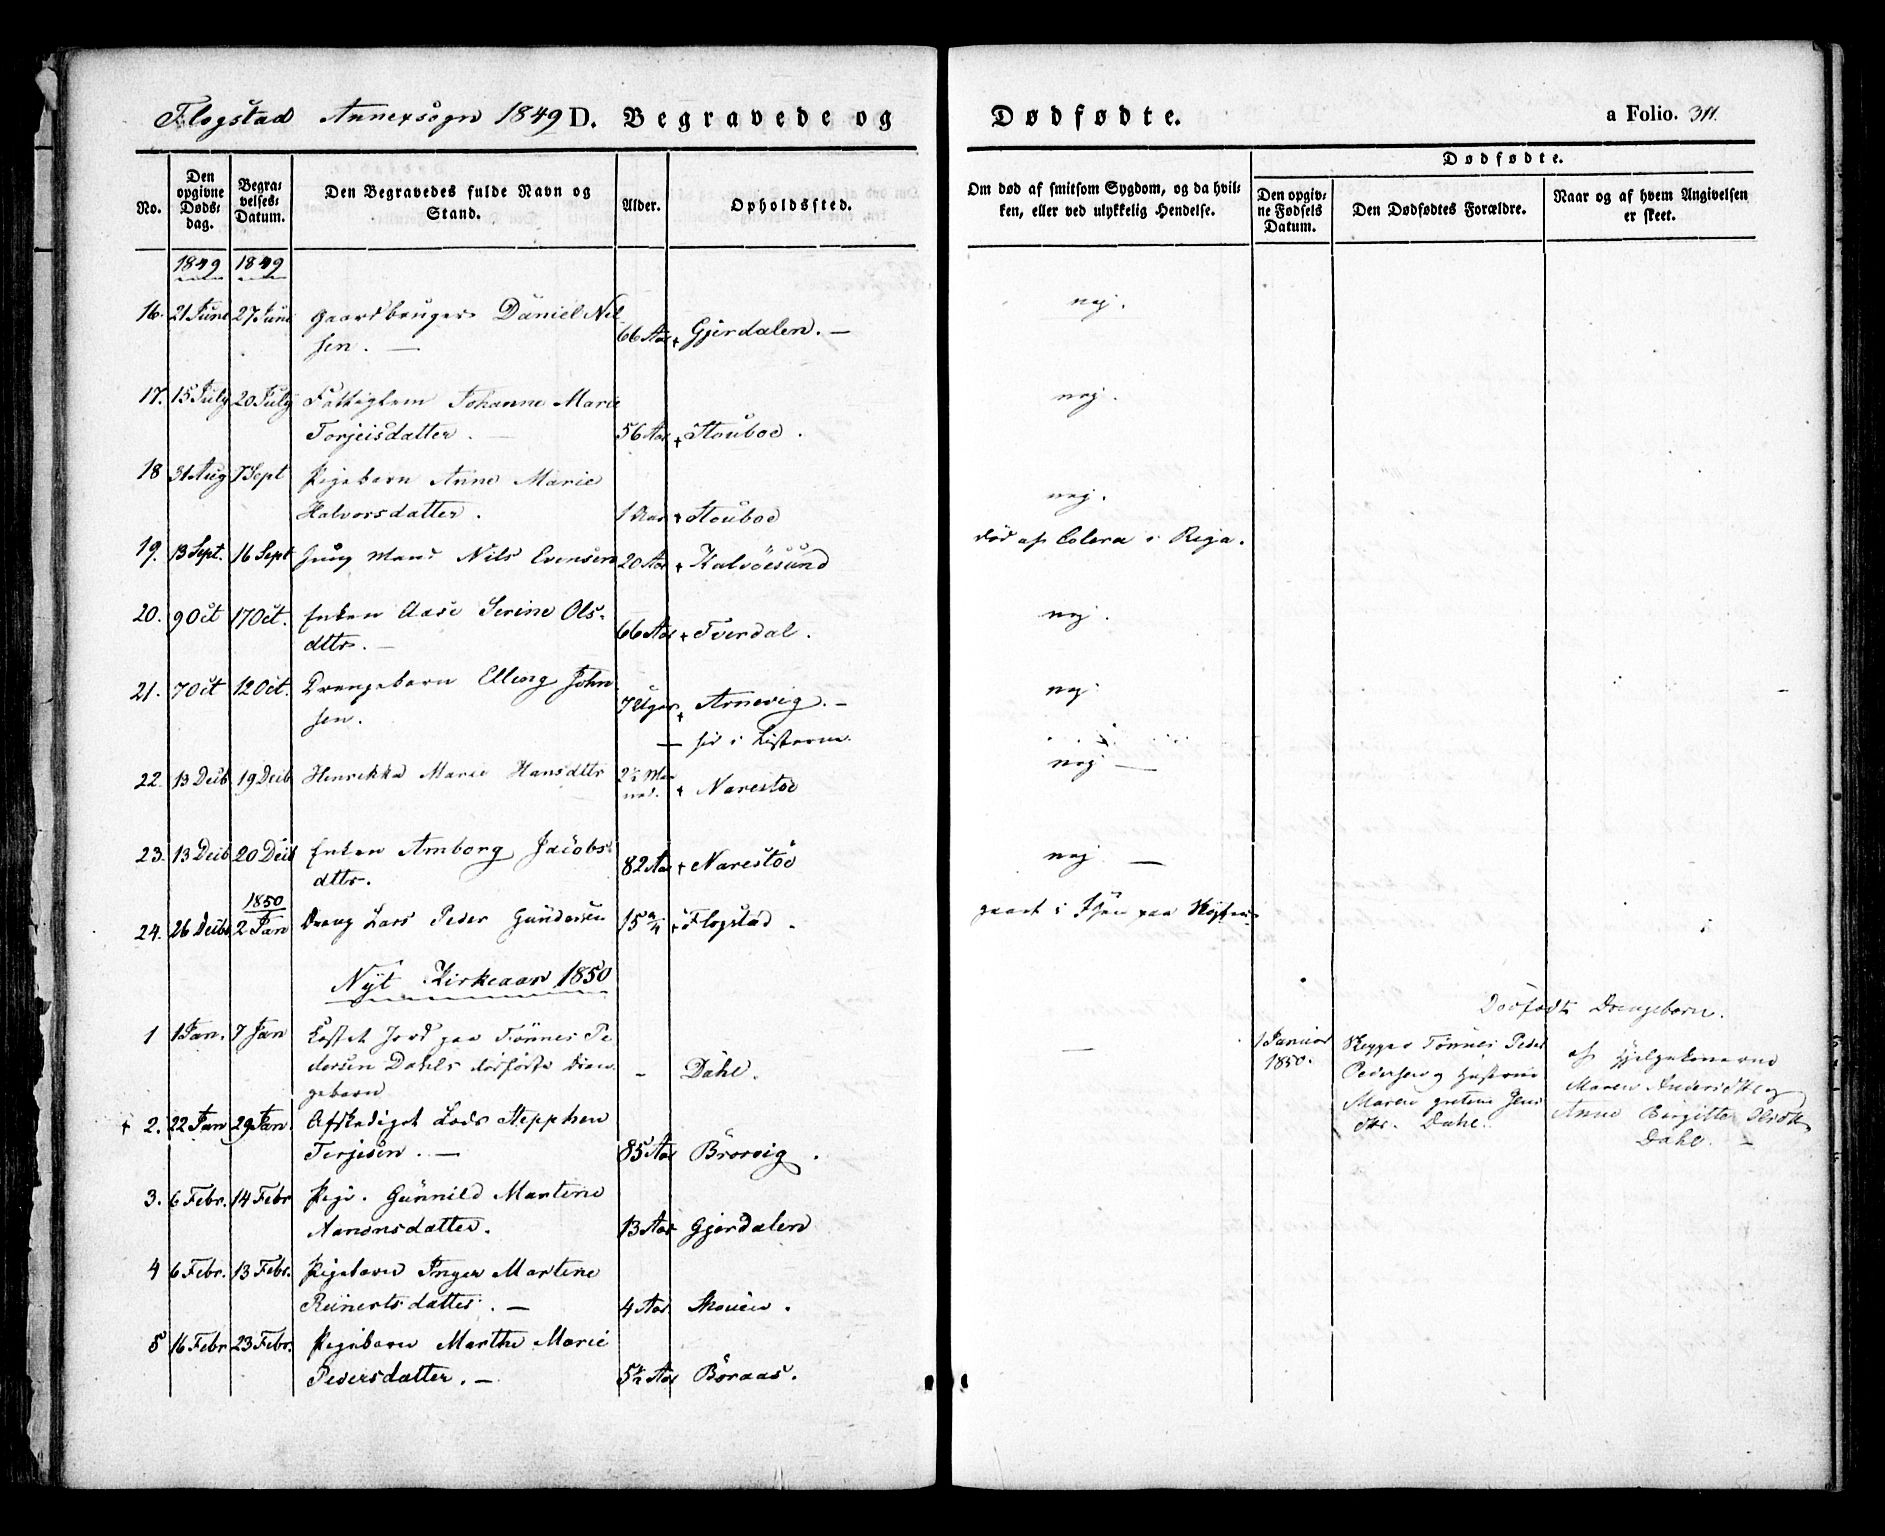 Flogstad Annexsogn 1849 D. Begravede og Dødfødte. a Folio. 311.
No. Den opgivne Døds-dag. Begra-velses-Datum. Den Begravedes fulde Navn og Stand. Alder. Opholdssted. Om død af smitsom Sygdom, og da hvil-ken, eller ved ulykkelig Hendelse. Dødfødte. Den opgiv-ne Fødsels Datum. Den Dødfødtes Forældre. Naar og af hvem Angivelsen er skeet.
1849 1849
16. 21 Juni 27 Juni Gaardbruger Daniel Nil
sen. — 66 Aar + Gjerdalen. — nej.
17. 15 July 20 July Fattiglem Johanne Marie
Torjeisdatter. — 56 Aar + Stouboe. nej.
18 31 Aug 7 Sept Pigebarn Anne Marie
Halvorsdatter. 1 Aar + Stouboe nej.
19. 13 Sept. 16 Sept Ung Mand Nils Evensen 20 Aar + Kalvöesund død af Colera i Riga.
20. 9 Oct 17 Oct. Enken Aase Serine Ols-
dttr. — 66 Aar + Tverdal. nej.
21. 7 Oct 12 Oct. Drengebarn Elling John
sen. 7 Uger + Arnevig. — nej
22. 13 Decb. 19 Decb Henrikka Marie Hansdttr 2½ Maaned. + Narestöe nej —
23. 13 Decb 20 Decb Enken Amborg Jacobs-
dttr. 82 Aar + Narestöe nej —
1850
24. 26 Decb 2 Jan Dreng Lars Peder Gundersen 15 + Flogstad. paa
Nyt Kirkeaar 1850
Dødfødt Drengebarn.
1 1 Jan. 7 Jan Kastet Jord paa Tönnes Pe
dersen Dahls dödfödte Dren
gebarn - Dahl. — 1 Januar 1850. Tönnes Peder
Pedersen og Hustrue
Maren Dahl.
af Hjelpekonerne
Maren og
Anne Birgitte
Dahl. —
+ 2. 22 Jan 29 Jan. Afskediget Lods Stepphen
Terjesen. — 85 Aar Brörvig.
3. 6 Febr. 14 Febr Pige. Gunnild Martine
Aanonsdatter. 13 Aar Gjerdalen
4 6 Febr. 13 Febr. Pigebarn Inger Martine
Reinertsdatter. — 4 Aar
5 16 Febr 23 Febr. Pigebarn Marthe Marie
Pedersdatter. — 5½ Aar Böraas.